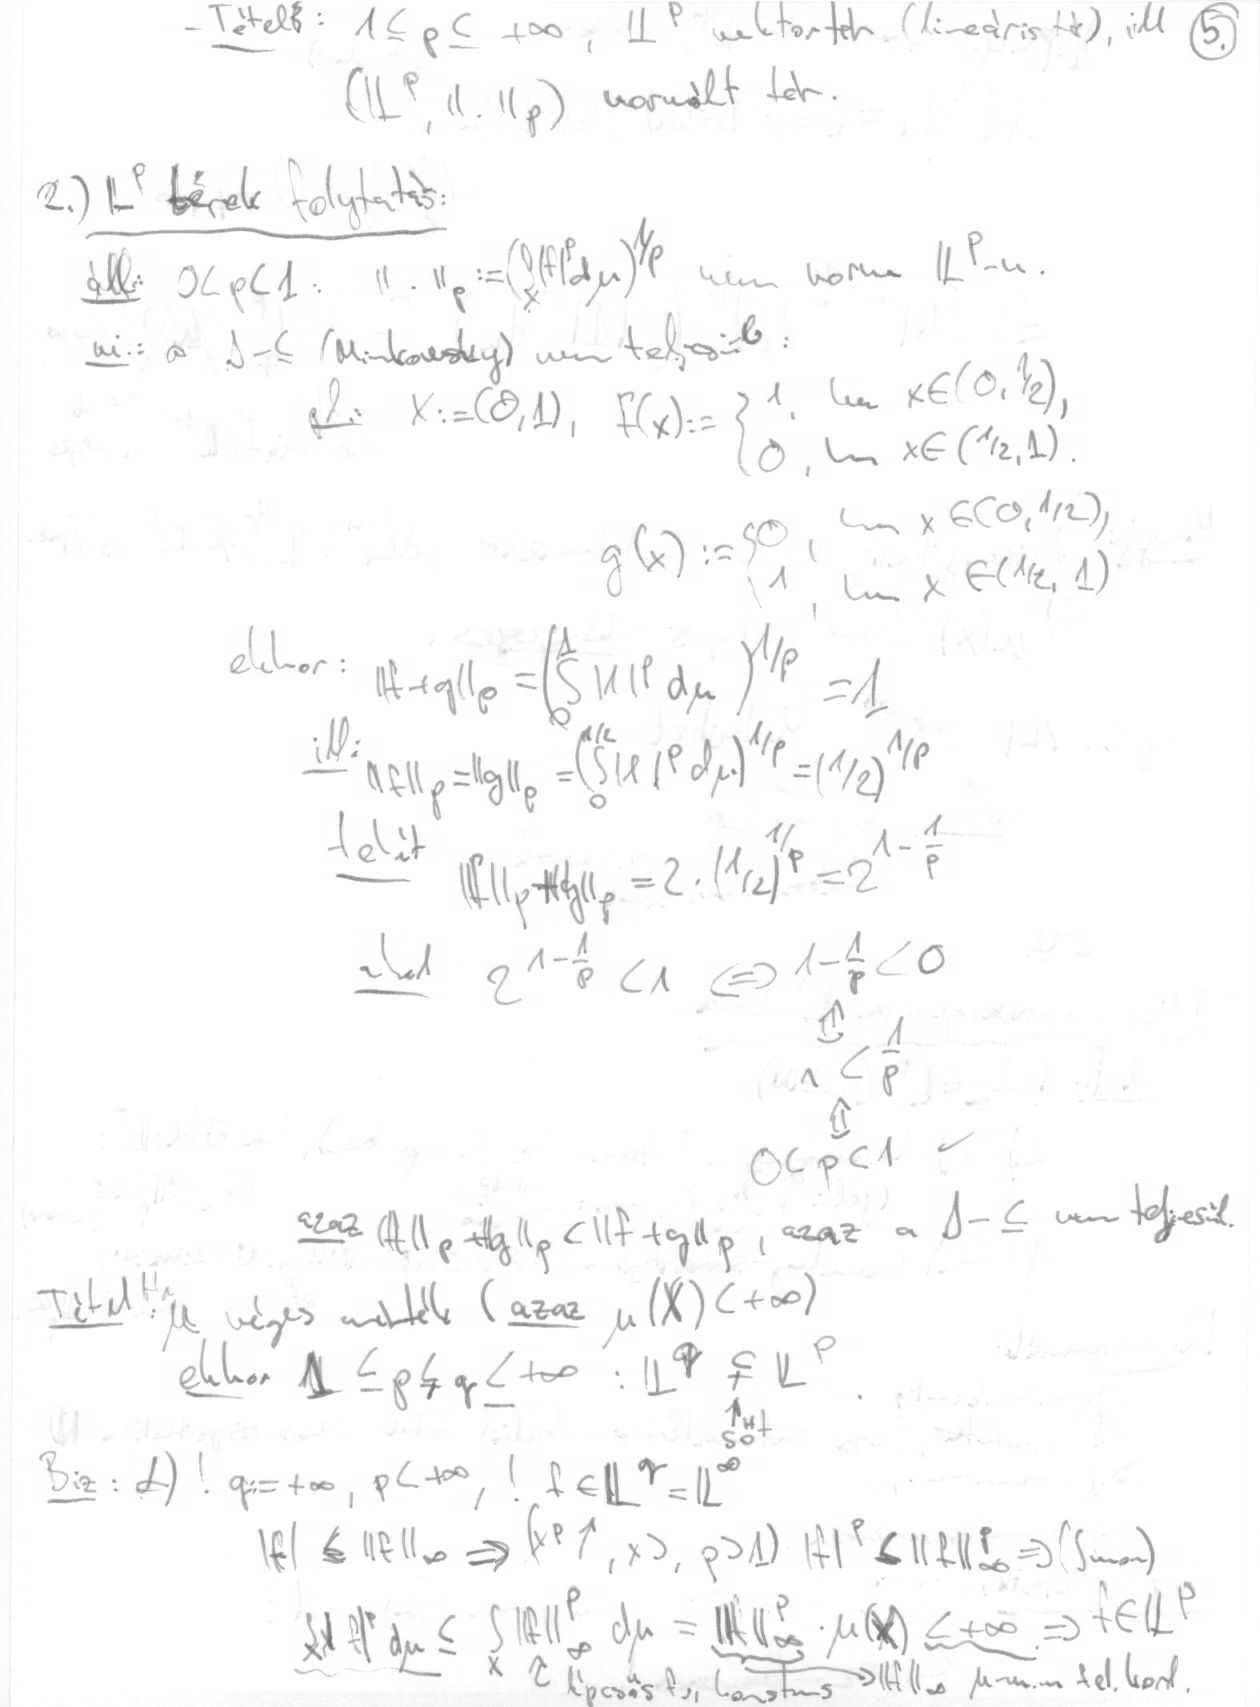 - Tétel: 1 ≤ p ≤ +∞, 𝕃^p vektortér (lineáris tér), ill 5.
(𝕃^p, ‖.‖_p) normált tér.
2.) 𝕃^p terek folytatás:
áll: 0<p<1: ‖.‖_p := (∫_X |f|^p dμ)^{1/p} nem norma 𝕃^p-n.
ui.: a Δ-≤ (Minkowsky) nem teljesül:
pl: X:=(0,1), f(x):= { 1, ha x∈(0,1/2),
0, ha x∈(1/2,1).
g(x) := { 0, ha x∈(0,1/2),
1, ha x∈(1/2,1)
ekkor: ‖f+g‖_p = (∫_0^1 |1|^p dμ)^{1/p} = 1
ill: ‖f‖_p = ‖g‖_p = (∫_0^{1/2} |1|^p dμ)^{1/p} = (1/2)^{1/p}
tehát ‖f‖_p + ‖g‖_p = 2·(1/2)^{1/p} = 2^{1-1/p}
ahol 2^{1-1/p} < 1 ⇔ 1-1/p < 0
⇕
1 < 1/p
⇕
0<p<1 ✓
azaz ‖f‖_p + ‖g‖_p < ‖f+g‖_p, azaz a Δ-≤ nem teljesül.
Tétel: Ha μ véges mérték (azaz μ(X)<+∞)
ekkor 1 ≤ p ≨ q ≤ +∞ : 𝕃^q ⊊ 𝕃^p.
↑
sőt
Biz: 1) ! q:=+∞, p<+∞, ! f∈𝕃^q = 𝕃^∞
|f| ≤ ‖f‖_∞ ⇒ (x^p ↑, x>, p>1) |f|^p ≤ ‖f‖_∞^p ⇒ (∫ mon)
∫_X |f|^p dμ ≤ ∫_X ‖f‖_∞^p dμ = ‖f‖_∞^p · μ(X) < +∞ ⇒ f∈𝕃^p
↑ lépcsős fv, konstans → ‖f‖_∞ μ-m.m fel. korl.